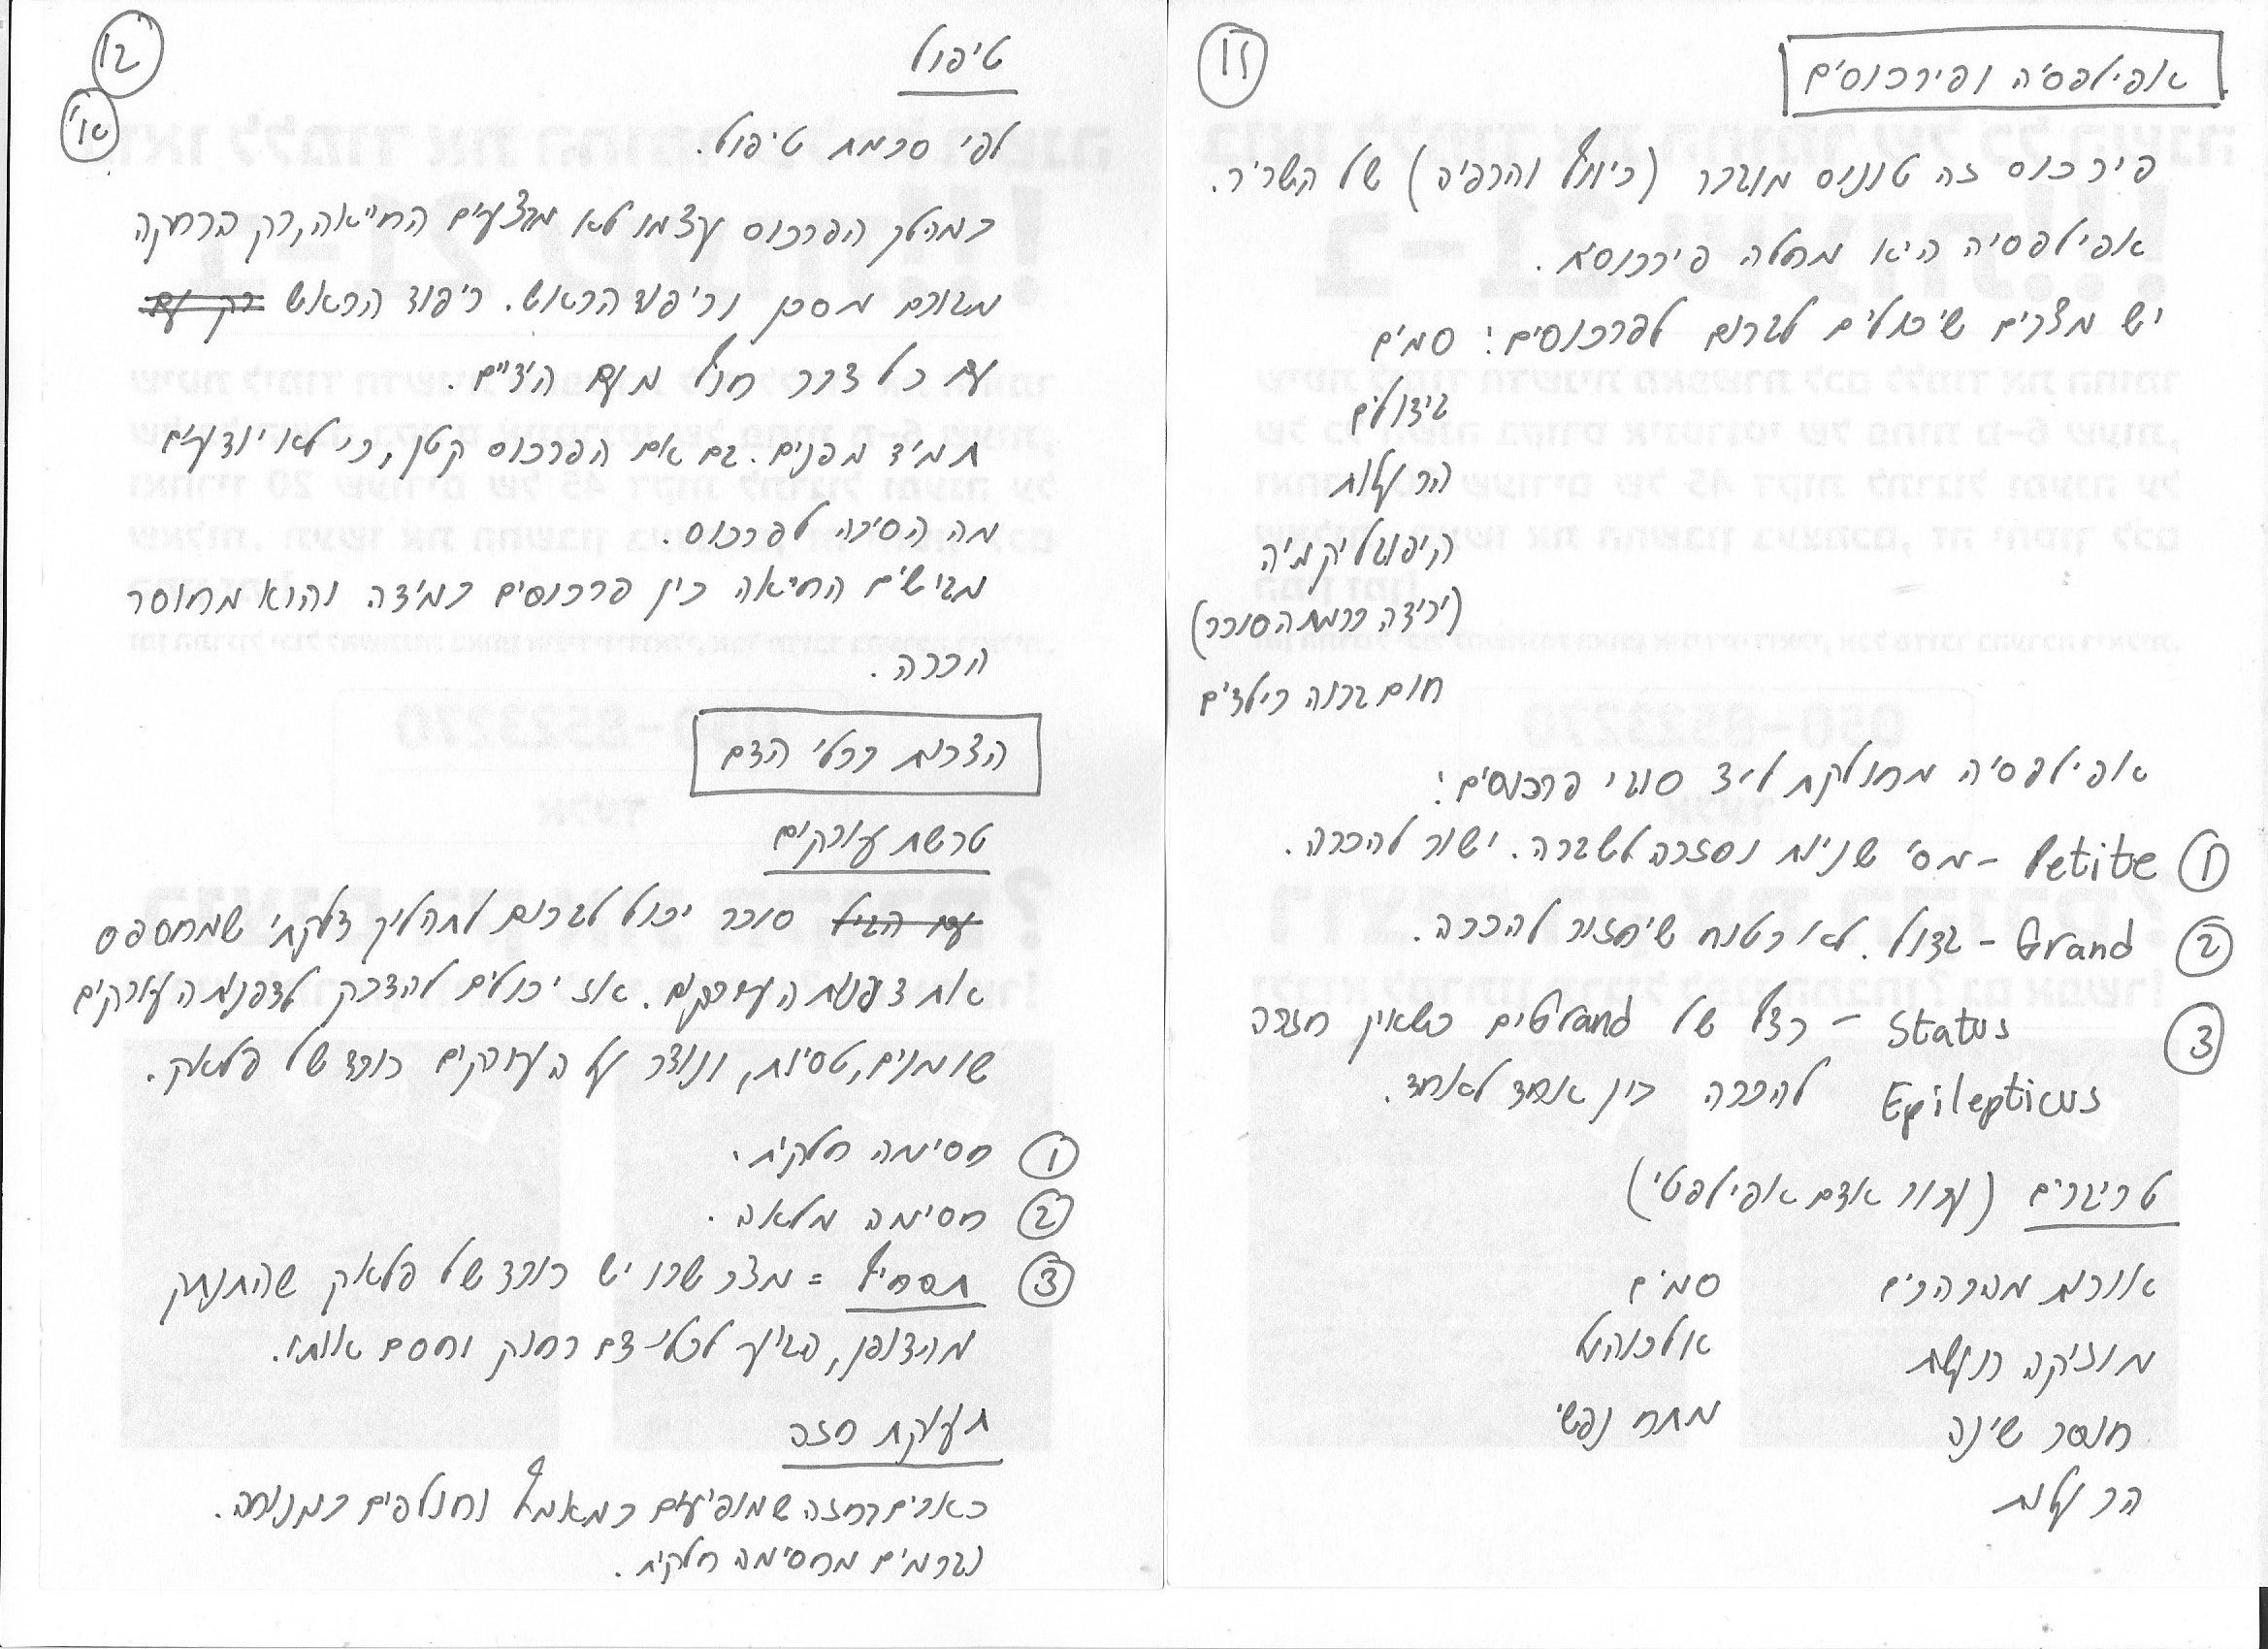 11
אפילפסיה ופירכוסים
פירכוס זה טונוס מוגבר (כיווץ והרפיה) של השריר.
אפילפסיה היא מחלה פירכוסית.
יש מצבים שיכולים לגרום לפרכוסים: סמים
גידולים
הרעלות
היפוגליקמיה
(ירידה ברמת הסוכר)
חום גבוה בילדים
אפילפסיה מחולקת ל-3 סוגי פרכוסים:
① Petite - מס' שניות וחזרה לשגרה. ישור להכרה.
② Grand - גדול. לא בטוח שיחזור להכרה.
③ Status - רצף של Grandים כשאין חזרה
Epilepticus להכרה בין אחד לאחד.
טריגרים (עבור אדם אפילפטי)
אורות מהבהבים סמים
מוזיקה רועשת אלכוהול
חוסר שינה מתח נפשי
הרעלות
12
א'
טיפול
לפי סכמת טיפול.
במהלך הפרכוס עצמו לא מבצעים החייאה, רק הרחקה
מגורם מסכן וריפוד הראש. ריפוד הראש רק עם
עם כל דבר חוץ מעם הידיים.
תמיד מפנים. גם אם הפרכוס קטן, כי לא יודעים
מה הסיבה לפרכוס.
מגישים החייאה בין פרכוסים במידה והוא מחוסר
הכרה.
הצרות בכלי הדם
טרשת עורקים
עם הגיל סוכר יכול לגרום לתהליך דלקתי שמחספס
את דפנות העורקים. אז יכולים להדבק לדפנות העורקים
שומנים, טסיות, ונוצר על העורקים רובד של פלאק.
① חסימה חלקית.
② חסימה מלאה.
③ תסחיף = מצב שבו יש רובד של פלאק שהתנתק
מהדופן, הגיע לכלי דם רחוק וחסם אותו.
תעוקת חזה
כאבים בחזה שמופיעים במאמץ וחולפים במנוחה.
נגרמים מחסימה חלקית.